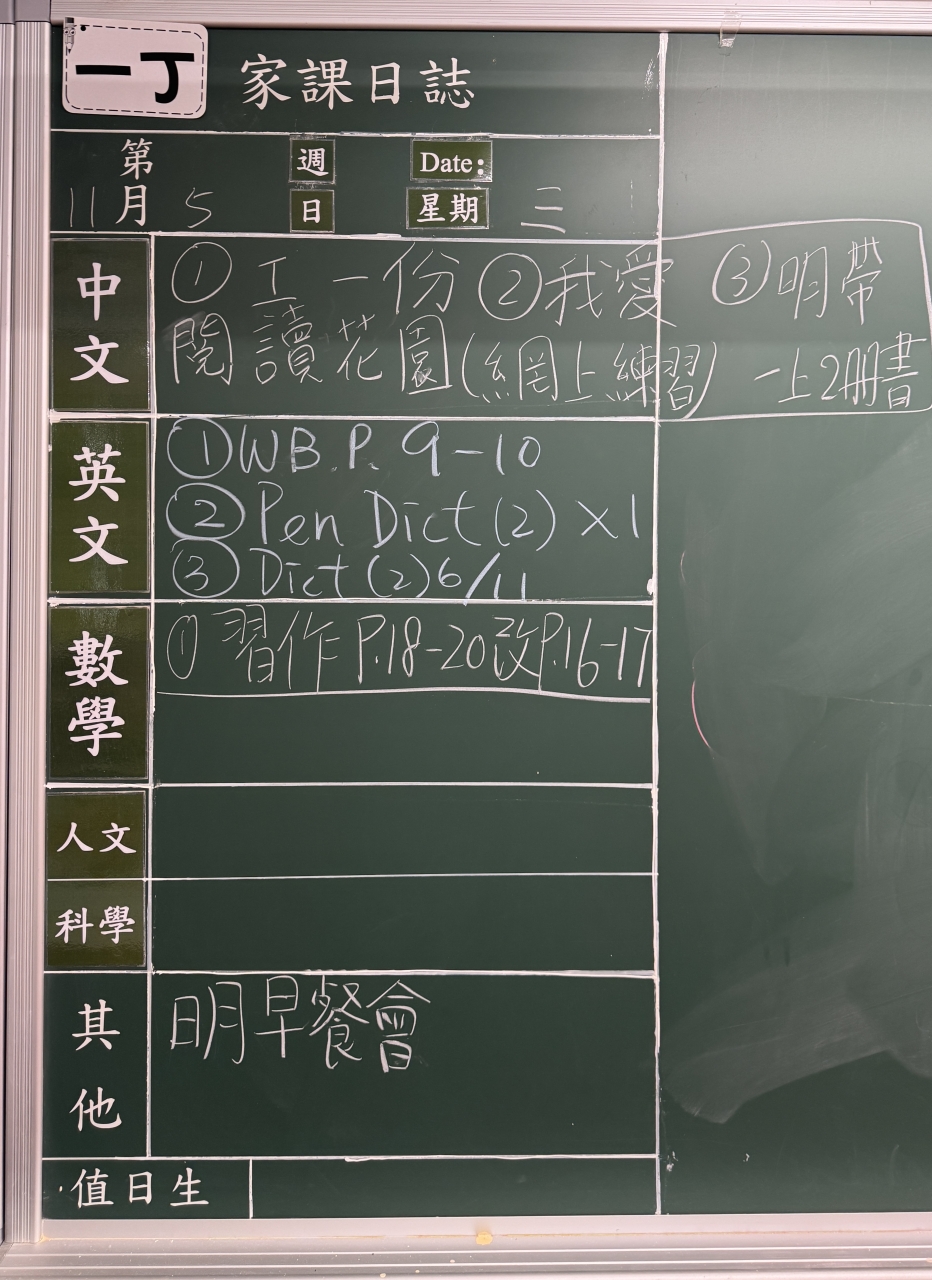 一丁 家課日誌
第 週 Date:
11月 5 日 星期 三
中文
① 工一份 ② 我愛
閱讀花園(網上練習)
③ 明帶
一上2冊書
英文
① WB.P. 9-10
② Pen Dict (2) ×1
③ Dict (2) 6/11
數學
① 習作 P.18-20改P.16-17
人文
科學
其他
明早餐會
值日生